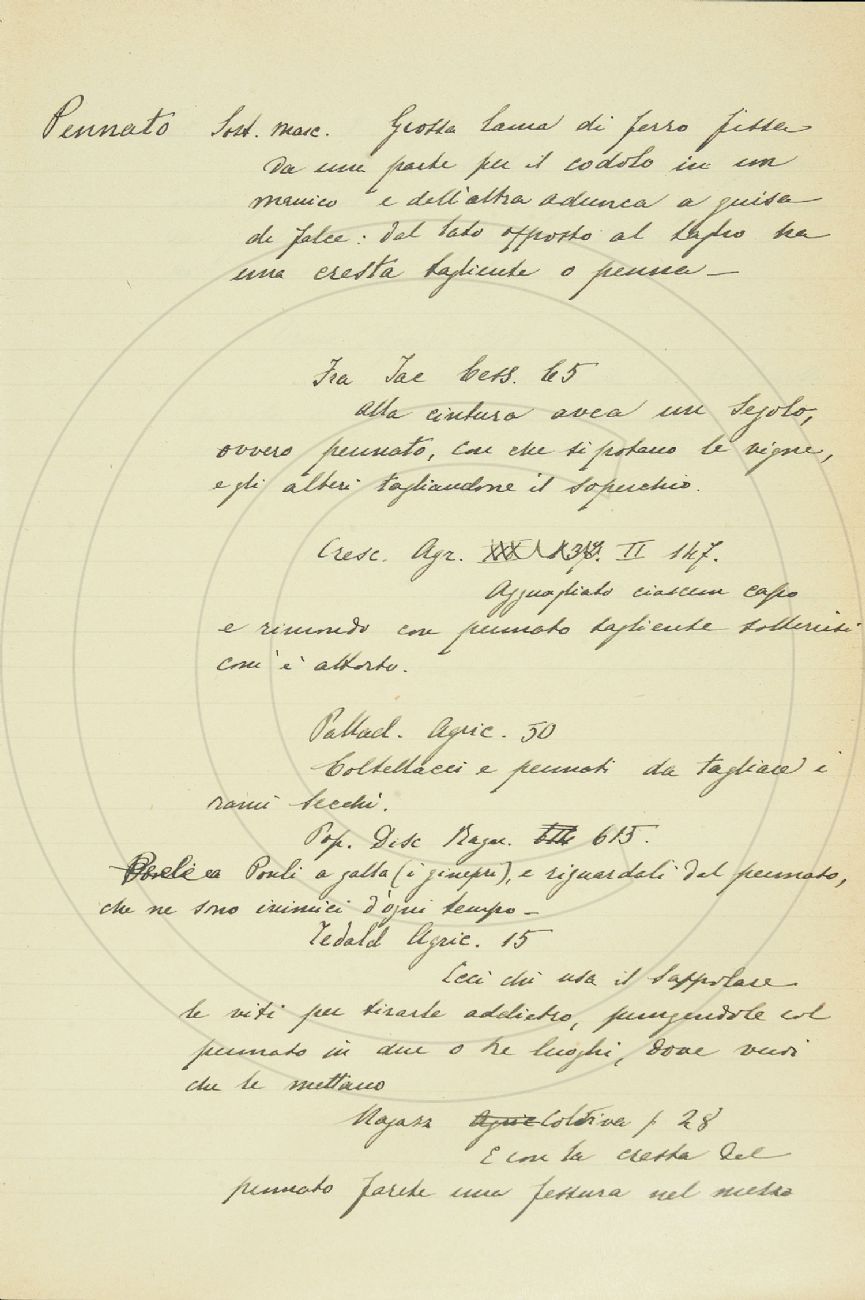 Pennato Sost. masc. Grossa lama di ferro fissa
da una parte per il codolo in un
manico e dell'altra adunca a guisa
di falce: dal lato opposto al taglio ha
una cresta tagliente o penna —
Fra Jac Cess. 65
Alla cintura avea un segolo,
ovvero pennato, con che si potano le vigne,
e gli alberi tagliandone il soperchio.
Cresc. Agr. II 147.
Agguagliato ciascun capo
e rimondo con pennato tagliente
com' è attorto.
Pallad. Agric. 50
Coltellacci e pennati da tagliare i
rami secchi.
Pop. Disc Ragu. 615.
Ponli a galla (i ginepri), e riguardali dal pennato,
che ne sono inimici d'ogni tempo —
Tedald Agric. 15
Ecci chi usa il
le viti per tirarle addietro, pungendole col
pennato in due o tre luoghi, dove vuoi
che le mettano
Ragazz Agric Coltiva p 28
E con la cresta del
pennato farete una fessura nel mezzo